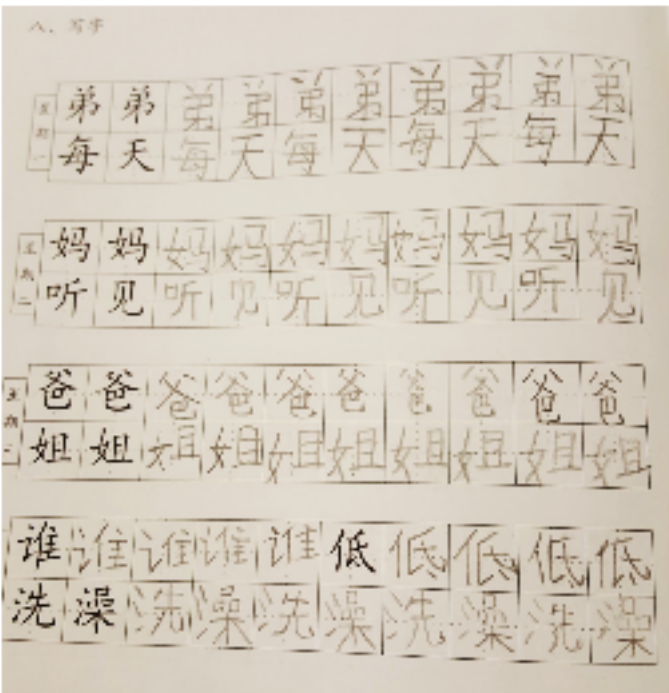 八、写字
星期一
弟弟弟弟弟弟弟弟弟弟
每天每天每天每天每天
星期二
妈妈妈妈妈妈妈妈妈妈
听见听见听见听见听见
星期
爸爸爸爸爸爸爸爸爸爸
姐姐姐姐姐姐姐姐姐姐
谁谁谁谁谁低低低低低
洗澡洗澡洗澡洗澡洗澡